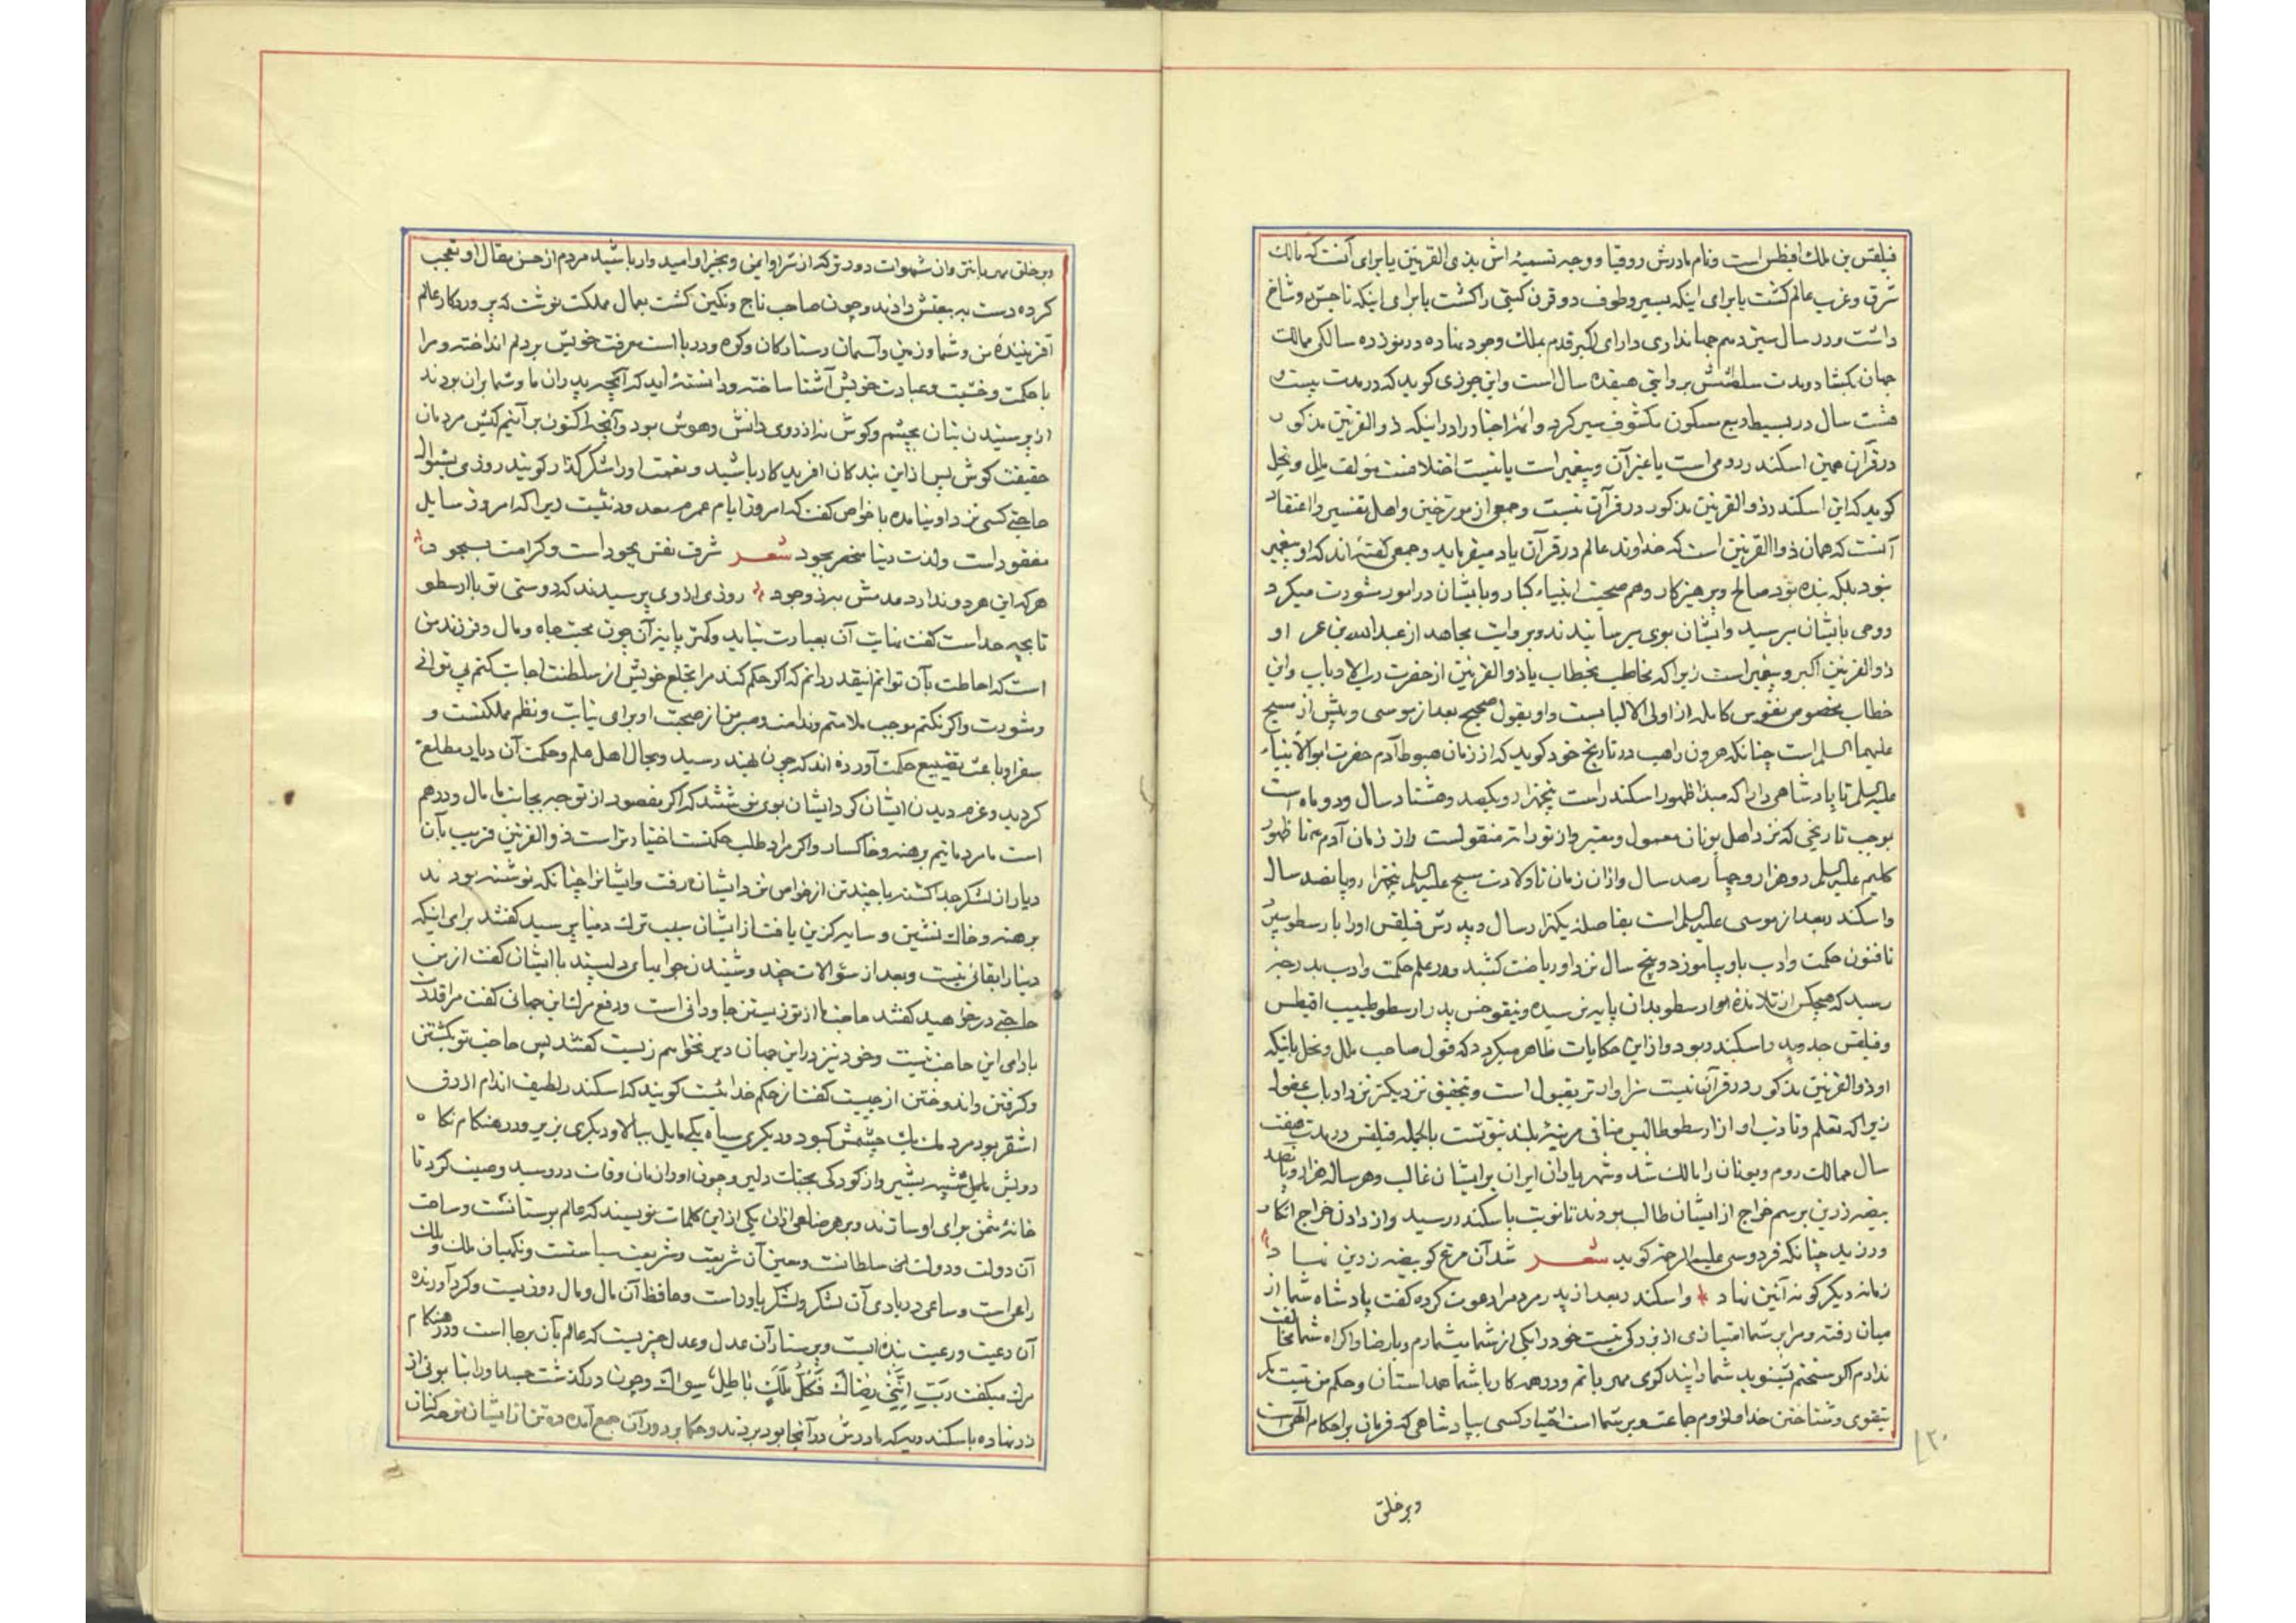 فیلقس بن ملک افیطس است و نام مادرش روقیا و وجه تسمیهٔ اش بذی القرنین یا برای آنست که مالک
شرق و غرب عالم کشت یا برای اینکه بسیر و طوف دو قرن کیتی را کشت یا برای اینکه تاجش دو شاخ
داشت و در سال سیزدهم جهانداری دارای اکبر قدم بملک وجود نهاده در نوزده سالکی ممالک
جهان بکشاد و مدت سلطنتش بروایتی هیفده سال است و ابن جوزی کوید که در مدت بیست و
هشت سال در بسیط ربع مسکون مکشوف سیر کرد و ائمهٔ اخبار را در اینکه ذوالقرنین مذکور
در قرآن همین اسکندر رومی است یا غیر آن و پیغمبر است یا نیست اختلافست مؤلف ملل و نحل
کوید که این اسکندر ذوالقرنین مذکور در قرآن نیست و جمعی از مورخین و اهل تفسیر را اعتقاد
آنست که همان ذوالقرنین است که خداوند عالم در قرآن یاد میفرماید و جمعی کفته اند که او پیغمبر
نبود بلکه بنده بود صالح و پرهیزکار و هم صحبت انبیاء کبار و با یشان در امور مشورت میکرد
و وحی با یشان میرسید و ایشان بوی میرسانیدند و بروایت مجاهد از عبدالله بن عمر او
ذوالقرنین اکبر و پیغمبر است زیرا که مخاطب بخطاب یا ذوالقرنین از حضرت رب الارباب و این
خطاب مخصوص نفوس کامله از اولی الالبابست و او بقول صحیح بعد از موسی و پیش از مسیح
علیهما السلم است چنانکه هرون راهب در تاریخ خود کوید که از زمان هبوط آدم حضرت ابو الانبیاء
علیه السلم تا پادشاهی دارا که مبدا ظهور اسکندر است پنجهزار و یکصد و هشتاد سال و دو ماه است
بموجب تاریخی که نزد اهل یونان معمول و معتبر و از توراته منقولست و از زمان آدم تا ظهور
کلیم علیه السلم دو هزار و چهارصد سال و از ان زمان تا ولادت مسیح علیه السلم پنجهزار و پانصد سال
و اسکندر بعد از موسی علیه السلم است بفاصلهٔ یکهزار سال و پدرش فیلقس او را بارسطو سپرد
تا فنون حکمت و ادب باو بیاموزد و پنج سال نزد او ریاضت کشید و در علم حکمت و ادب بدرجهٔ
رسید که هیچکس از تلامذهٔ ارسطو بدان پایه نرسیده و نیقوخس پدر ارسطو طبیب افیطس
و فیلقس جد و پدر اسکندر بود و از این حکایات ظاهر میکردد که قول صاحب ملل و نحل باینکه
او ذوالقرنین مذکور در قرآن نیست سزاوارتر بقبول است و بتحقیق نزدیکتر نزد ارباب عقول
زیرا که تعلم و تادب او از ارسطوطالیس منافی مرتبهٔ بلند نبوتست بالجمله فیلقس در مدت هفت
سال ممالک روم و یونان را مالک شد و شهریاران ایران بر ایشان غالب و هر ساله هزار و پانصد
بیضه زرین برسم خراج از ایشان طالب بودند تا نوبت باسکندر رسید و از دادن خراج انکار
ورزید چنانکه فردوسی علیه الرحمه کوید شعر شد آن مرغ کو بیضه زرین نهاد
زمانه دیکر کونه آئین نهاد و اسکندر بعد از پدر مردم را دعوت کرده کفت پادشاه شما از
میان رفته و مرا بر شما امتیازی از بزرکی نیست خود را یکی از شما میشمارم و با رضا و اکراه شما مخالفت
ندارم اکر سخنم بشنوید شما را پند کوی مهربانم و در همه کار با شما همداستان و حکم من نیست مکر
بتقوی و شناختن خدا و لزوم جماعت و بر شما است اختیار کسی بپادشاهی که فرمان بر احکام الهی است
وبر خلق
وبر خلق مهربانتر و ان شهوات دورتر که از شر او ایمن و بخیر او امیدوار باشید مردم از حسن مقال او تعجب
کرده دست به بیعتش دادند و چون صاحب تاج و نکین کشت بعمال مملکت نوشت که پروردکار عالم
آفرینندهٔ من و شما و زمین و آسمان و ستارکان و کوه و دریا است معرفت خویش بر دلم انداخته و مرا
با حکمت و خشیت و عبادت خویش آشنا ساخته و دانستهٔ اید که آنچه پدران ما و شما بر ان بودند
از پرستیدن بتان بچشم و کوش نه از روی دانش و هوش بود و آنچه اکنون بر آنیم کیش مردمان
حقیقت کوش پس از این بندکان آفریدکار باشید و نعمت او را شکر کذار کویند روزی بسؤال
حاجتی کسی نزد او نیامده با خواص کفت که امروز از ایام عمرم معدود نیست زیرا که امروز سایل
مفقود است و لذت دنیا منحصر بجود شعر شرف نفس بجود است و کرامت بسجود
هر که این هر دو ندارد عدمش به ز وجود روزی از وی پرسیدند که دوستی تو با ارسطو
تا بچه حد است کفت نهایت آن بعبارت نیاید و کمتر پایهٔ آن چون محبت جاه و مال و فرزند من
است که احاطت بآن توانم اینقدر دانم که اکر حکم کند مرا بخلع خویش از سلطنت اجابت کنم بی توانی
و مشورت و اکر نکنم موجب ملامتم و ندامتست و صبر من از صحبت او برای نیابت و نظم مملکتست و
سفر او باعث تضییع حکمت آورده اند که چون بهند رسید و بحال اهل علم و حکمت آن دیار مطلع
کردید و عزم دیدن ایشان کرد ایشان بوی نوشتند که اکر مقصود از توجه بجانب ما مال و درهم
است ما مردمانیم برهنه و خاکسار و اکر مراد طلب حکمتست اختیار تراست ذوالقرنین قریب بآن
دیار از لشکر جدا کشته با چند تن از خواص نزد ایشان رفت و ایشانرا چنانکه نوشته بودند
برهنه و خاک نشین و سایه کزین یافت از ایشان سبب ترک دنیا پرسید کفتند برای اینکه
دنیا را بقائی نیست و بعد از سؤالات چند و شنیدن جوابهای دلپسند با ایشان کفت از من
حاجتی درخواهید کفتند حاجت ما از تو زیستن جاودانی است و دفع مرک این جهانی کفت مرا قدرت
بادای این حاجت نیست و خود نیز در این جهان دیر نخواهم زیست کفتند پس حاجت تو بکشتن
و کرفتن و اندوختن از چیست کفت از حکم خدائیست کویند که اسکندر لطیف اندام ازرق
اشقر بود مردمک یک چشمش کبود و دیکری سیاه یکی مایل ببالا و دیکری بزیر و در هنکام نکاه
رویش مایل شبیه بشیر و از کودکی بجنک دلیر و چون او را زمان وفات در رسید وصیت کرد تا
خانهٔ مثمن برای او ساختند و بر هر ضلعی از ان یکی از این کلمات نویسند که عالم بوستانست و ساحت
آن دولت و دولت سلطانست و معین آن شریعت و شریعت سیاستست و نکهبان ملک و ملک
راعی است و ساعی در یاری آن لشکر و لشکر یاور است و محافظ آن مال و مال روزیست و کرد آورنده
آن رعیت و رعیت بنده ایست و پرستار آن عدل و عدل چیزیست که عالم بآن برجا است و در هنکام
مرک میکفت رب اننی رضاک فکل ملک باطل سواک و چون درکذشت جسد او را با تابوتی از
زر نهاده باسکندریه که مادرش در آنجا بود بردند و حکما بر دور آن جمع آمده ده تن از ایشان نوحه کنان